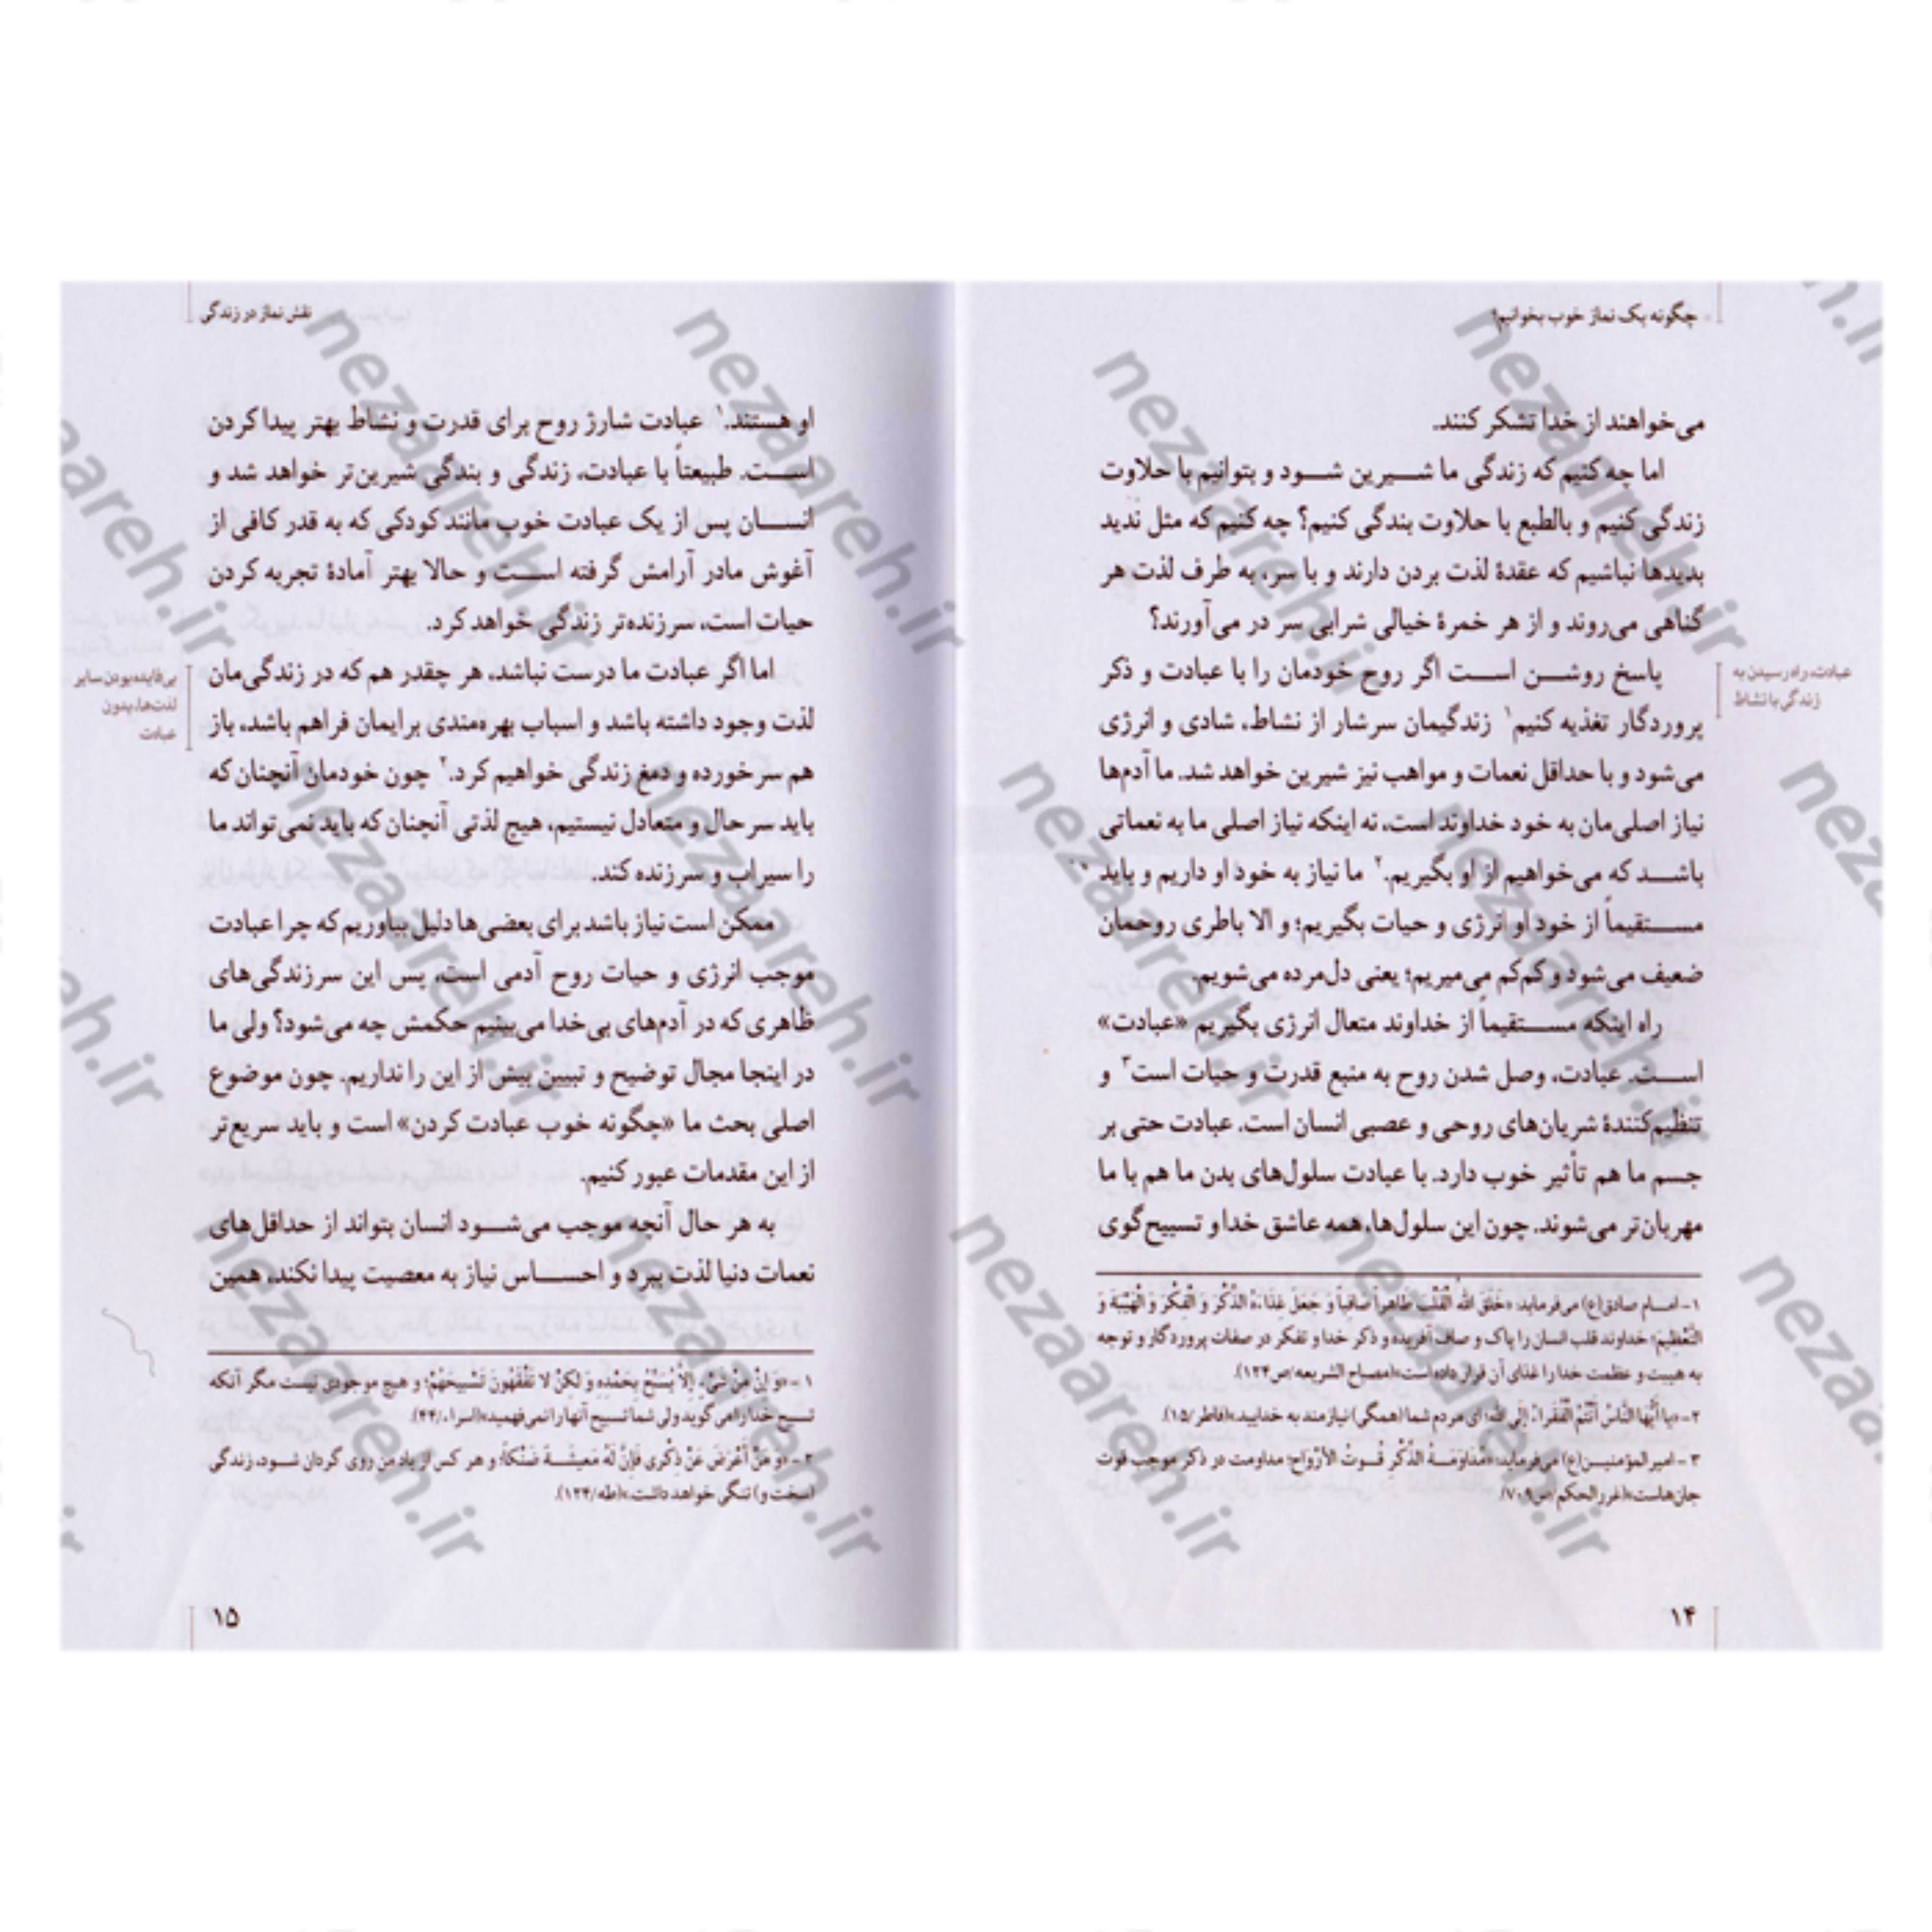 چگونه یک نماز خوب بخوانیم؟
می‌خواهند از خدا تشکر کنند.
اما چه کنیم که زندگی ما شـــیرین شـــود و بتوانیم با حلاوت
زندگی کنیم و بالطبع با حلاوت بندگی کنیم؟ چه کنیم که مثل ندید
بدیدها نباشیم که عقدهٔ لذت بردن دارند و با سر، به طرف لذت هر
گناهی می‌روند و از هر خمرهٔ خیالی شرابی سر در می‌آورند؟
عبادت، راه رسیدن به
زندگی با نشاط
پاسخ روشـــن اســـت اگر روح خودمان را با عبادت و ذکر
پروردگار تغذیه کنیم۱ زندگیمان سرشار از نشاط، شادی و انرژی
می‌شود و با حداقل نعمات و مواهب نیز شیرین خواهد شد. ما آدم‌ها
نیاز اصلی‌مان به خود خداوند است، نه اینکه نیاز اصلی ما به نعماتی
باشـــد که می‌خواهیم از او بگیریم.۲ ما نیاز به خود او داریم و باید
مســـتقیماً از خود او انرژی و حیات بگیریم؛ و الا باطری روحمان
ضعیف می‌شود و کم‌کم می‌میریم؛ یعنی دل‌مرده می‌شویم.
راه اینکه مســـتقیماً از خداوند متعال انرژی بگیریم «عبادت»
اســـت. عبادت، وصل شدن روح به منبع قدرت و حیات است۳ و
تنظیم‌کنندهٔ شریان‌های روحی و عصبی انسان است. عبادت حتی بر
جسم ما هم تأثیر خوب دارد. با عبادت سلول‌های بدن ما هم با ما
مهربان‌تر می‌شوند. چون این سلول‌ها، همه عاشق خدا و تسبیح‌گوی
۱- امـام صادق(ع) می‌فرماید: «خَلَقَ اللهُ الْقَلْبَ طاهِراً صافِیاً وَ جَعَلَ غِذاءَهُ الذِّکْرَ وَ الْفِکْرَ وَ الْهَیْبَةَ وَ
التَّعْظِیمَ؛ خداوند قلب انسان را پاک و صاف آفریده و ذکر خدا و تفکر در صفات پروردگار و توجه
به هیبت و عظمت خدا را غذای آن قرار داده است»(مصباح الشریعه/ص۱۲۴).
۲- «یا أَیُّهَا النّاسُ أَنْتُمُ الْفُقَراءُ إِلَی اللهِ؛ ای مردم شما (همگی) نیازمند به خدایید.»(فاطر/۱۵).
۳- امیر المؤمنیـن(ع) می‌فرماید: «مُداوَمَـةُ الذِّکْرِ قُـوتُ الأَرْواحِ؛ مداومت در ذکر موجب قوت
جان‌هاست»(غررالحکم/ص۷۰۹)
۱۴
نقش نماز در زندگی
او هستند.۱ عبادت شارژ روح برای قدرت و نشاط بهتر پیدا کردن
اســـت. طبیعتاً با عبادت، زندگی و بندگی شیرین‌تر خواهد شد و
انســـان پس از یک عبادت خوب مانند کودکی که به قدر کافی از
آغوش مادر آرامش گرفته اســـت و حالا بهتر آمادهٔ تجربه کردن
حیات است، سرزنده‌تر زندگی خواهد کرد.
بی‌فایده بودن سایر
لذت‌ها، بدون
عبادت
اما اگر عبادت ما درست نباشد، هر چقدر هم که در زندگی‌مان
لذت وجود داشته باشد و اسباب بهره‌مندی برایمان فراهم باشد، باز
هم سرخورده و دمغ زندگی خواهیم کرد.۲ چون خودمان آنچنان که
باید سر حال و متعادل نیستیم، هیچ لذتی آنچنان که باید نمی‌تواند ما
را سیراب و سرزنده کند.
ممکن است نیاز باشد برای بعضی‌ها دلیل بیاوریم که چرا عبادت
موجب انرژی و حیات روح آدمی است، پس این سرزندگی‌های
ظاهری که در آدم‌های بی‌خدا می‌بینیم حکمش چه می‌شود؟ ولی ما
در اینجا مجال توضیح و تبیین بیش از این را نداریم. چون موضوع
اصلی بحث ما «چگونه خوب عبادت کردن» است و باید سریع‌تر
از این مقدمات عبور کنیم.
به هر حال آنچه موجب می‌شـــود انسان بتواند از حداقل‌های
نعمات دنیا لذت ببرد و احســـاس نیاز به معصیت پیدا نکند، همین
۱- «وَ إِنْ مِنْ شَیْءٍ إِلاّ یُسَبِّحُ بِحَمْدِهِ وَ لکِنْ لا تَفْقَهُونَ تَسْبِیحَهُمْ؛ و هیچ موجودی نیست مگر آنکه
تسبیح خدا را می‌گوید ولی شما تسبیح آنها را نمی‌فهمید»(اسراء/۴۴).
۲- «وَ مَنْ أَعْرَضَ عَنْ ذِکْرِی فَإِنَّ لَهُ مَعِیشَـةً ضَنْکاً؛ و هر کس از یاد من روی گردان شـود، زندگی
(سخت و) تنگی خواهد داشت.»(طه/۱۲۴).
۱۵
nezaareh.ir